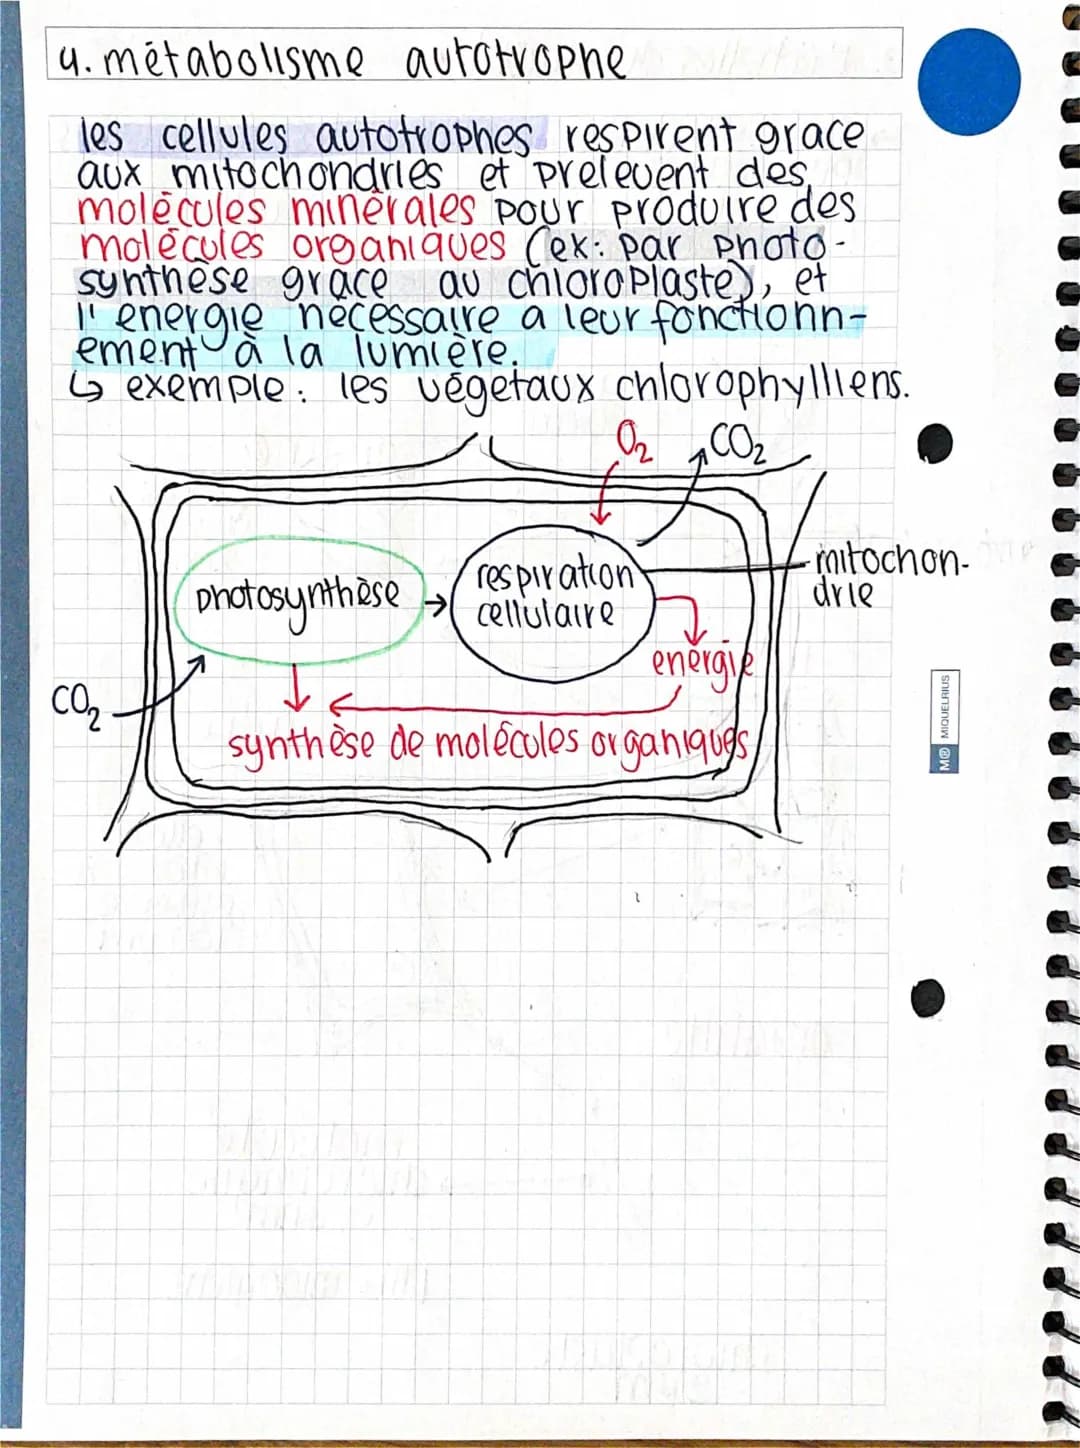 4. métabolisme autotrophe
les cellules autotrophes respirent grace
aux mitochondries et prelevent des
molécules minérales pour produire des
molécules organiques (ex: par photo-
synthèse grace au chloroplaste), et
l'energie nécessaire a leur fonctionn-
ement à la lumière.
↳ exemple: les végetaux chlorophylliens.
O₂
CO₂
photosynthèse
respiration
cellulaire
mitochon-
drie
energie
CO₂
synthèse de molécules organiques
MIQUELRIUS